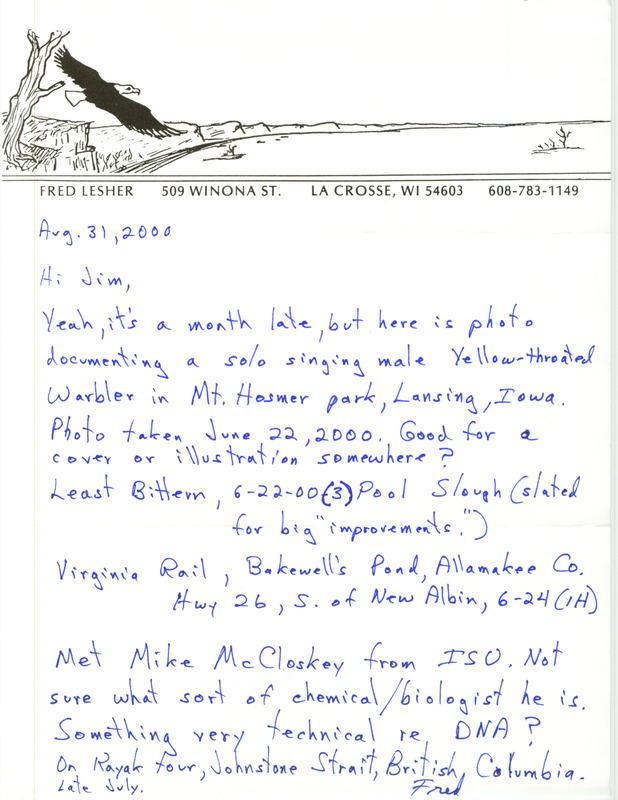 FRED LESHER 509 WINONA ST. LA CROSSE, WI 54603 608-783-1149
Aug. 31, 2000
Hi Jim,
Yeah, it's a month late, but here is photo
documenting a solo singing male Yellow-throated
Warbler in Mt. Hosmer park, Lansing, Iowa.
Photo taken June 22, 2000. Good for a
cover or illustration somewhere?
Least Bittern, 6-22-00 (3) Pool Slough (slated
for big "improvements.")
Virginia Rail, Bakewell's Pond, Allamakee Co.
Hwy 26, S. of New Albin, 6-24 (1H)
Met Mike McCloskey from ISU. Not
sure what sort of chemical/biologist he is.
Something very technical re DNA?
On Kayak tour, Johnstone Strait, British, Columbia.
Late July.
Fred